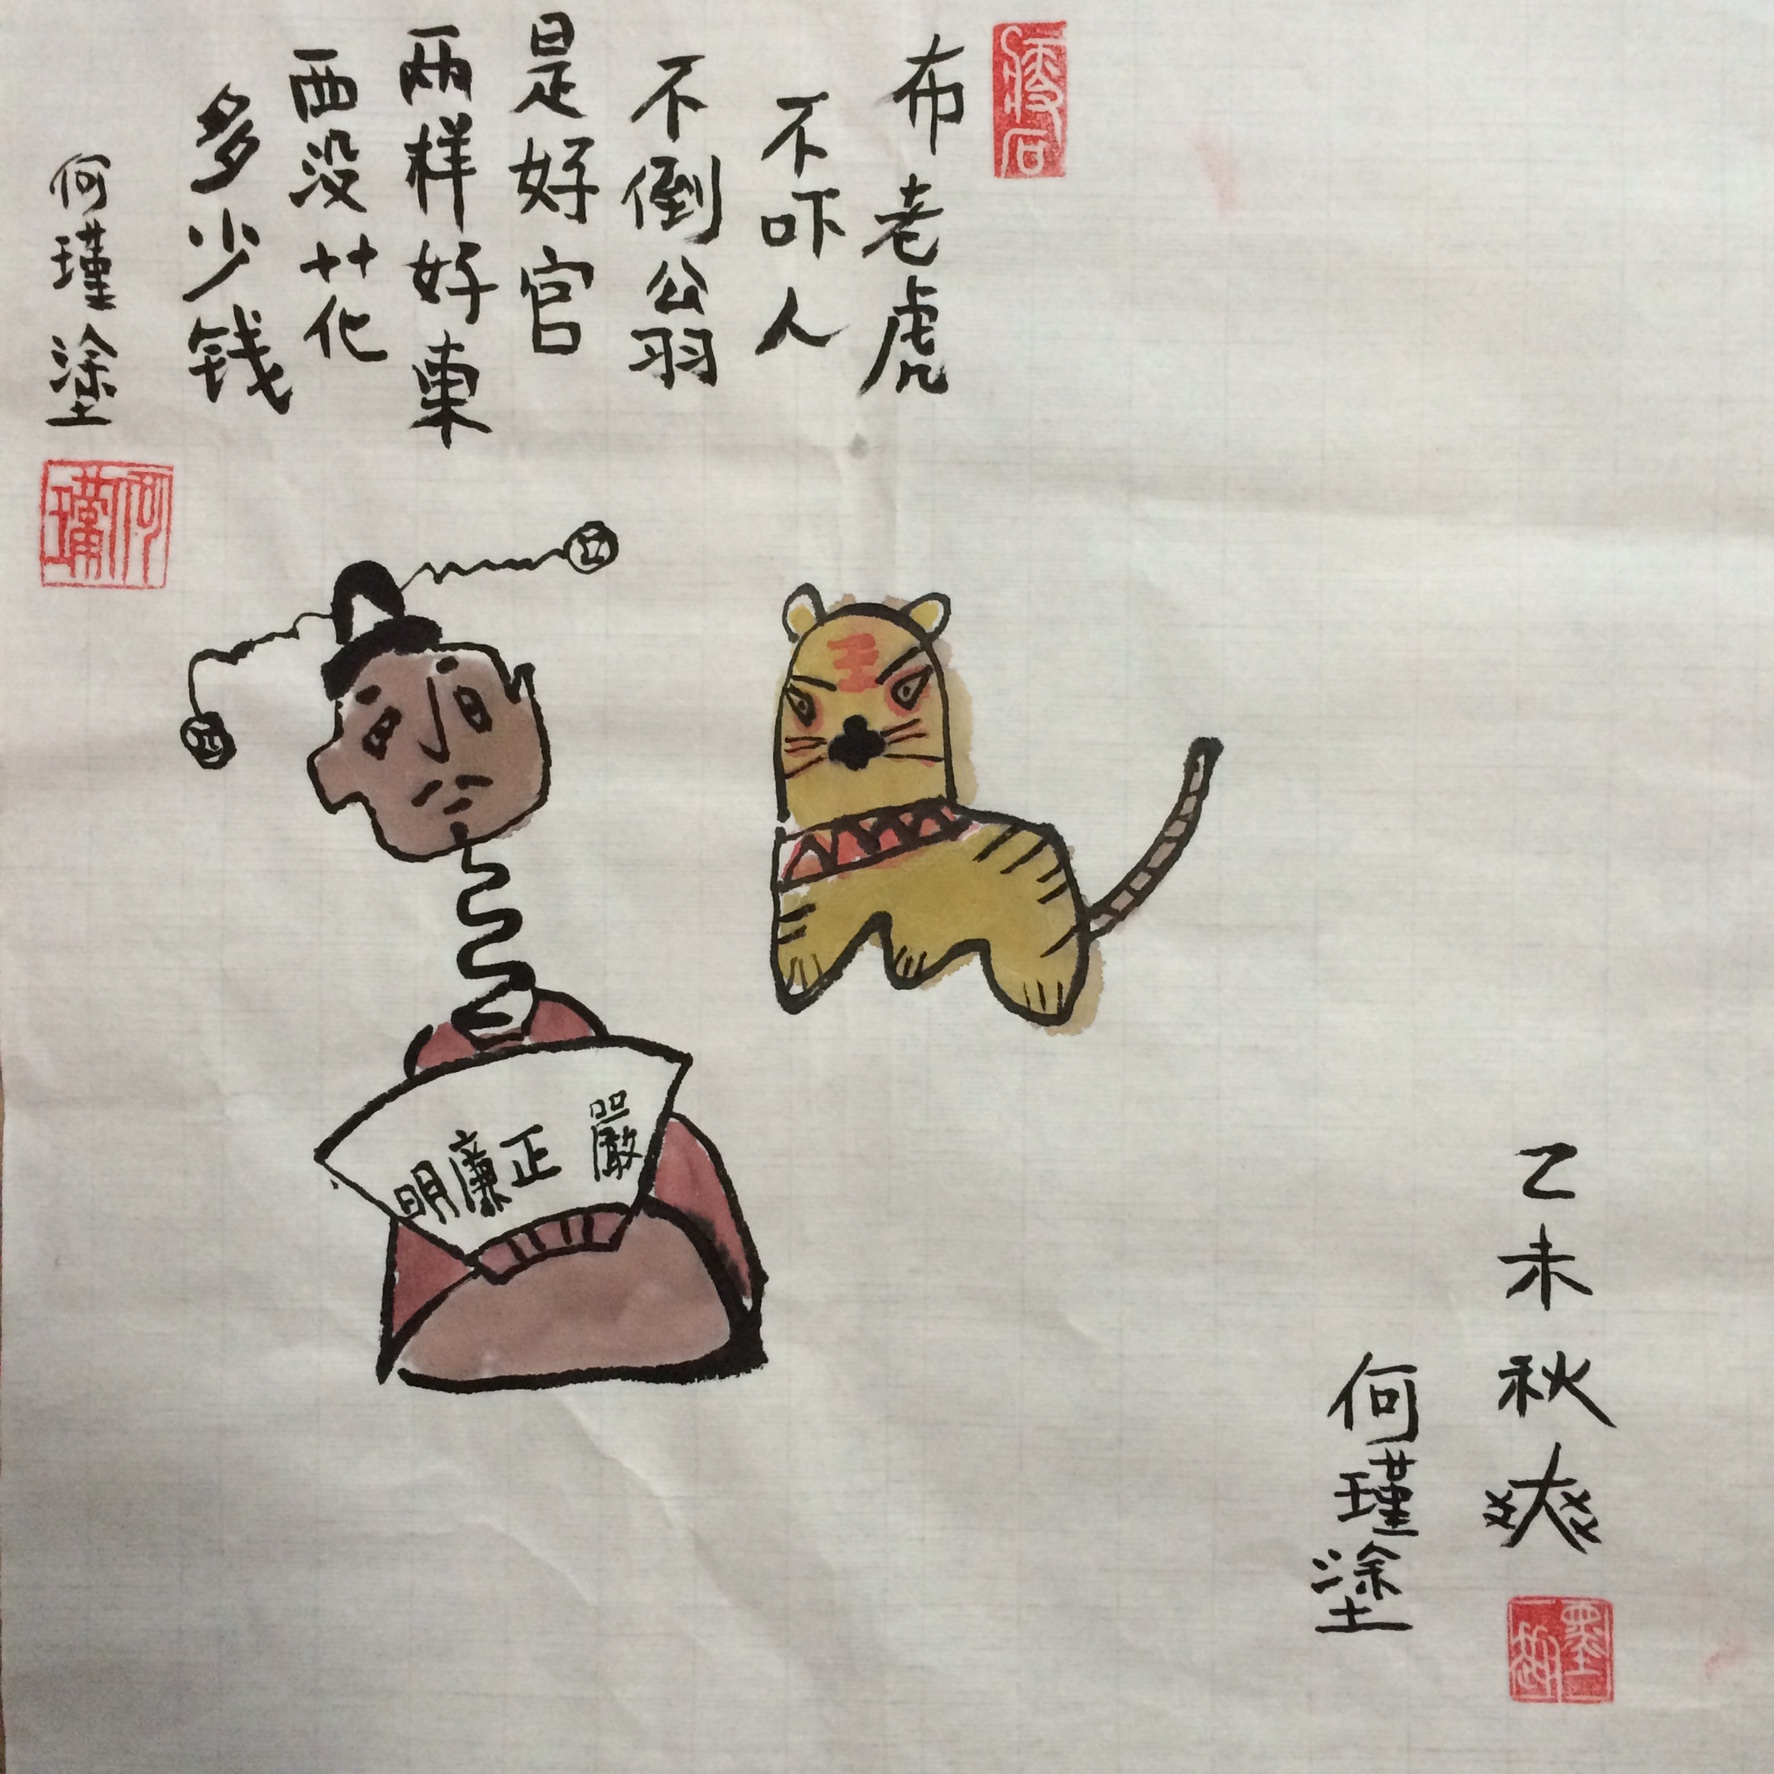 布老虎
不吓人
不倒公羽
是好官
两样好東
西没花
多少钱
何瑾塗
何瑾
王
嚴正廉明
乙未秋爽
何瑾塗
墨趣